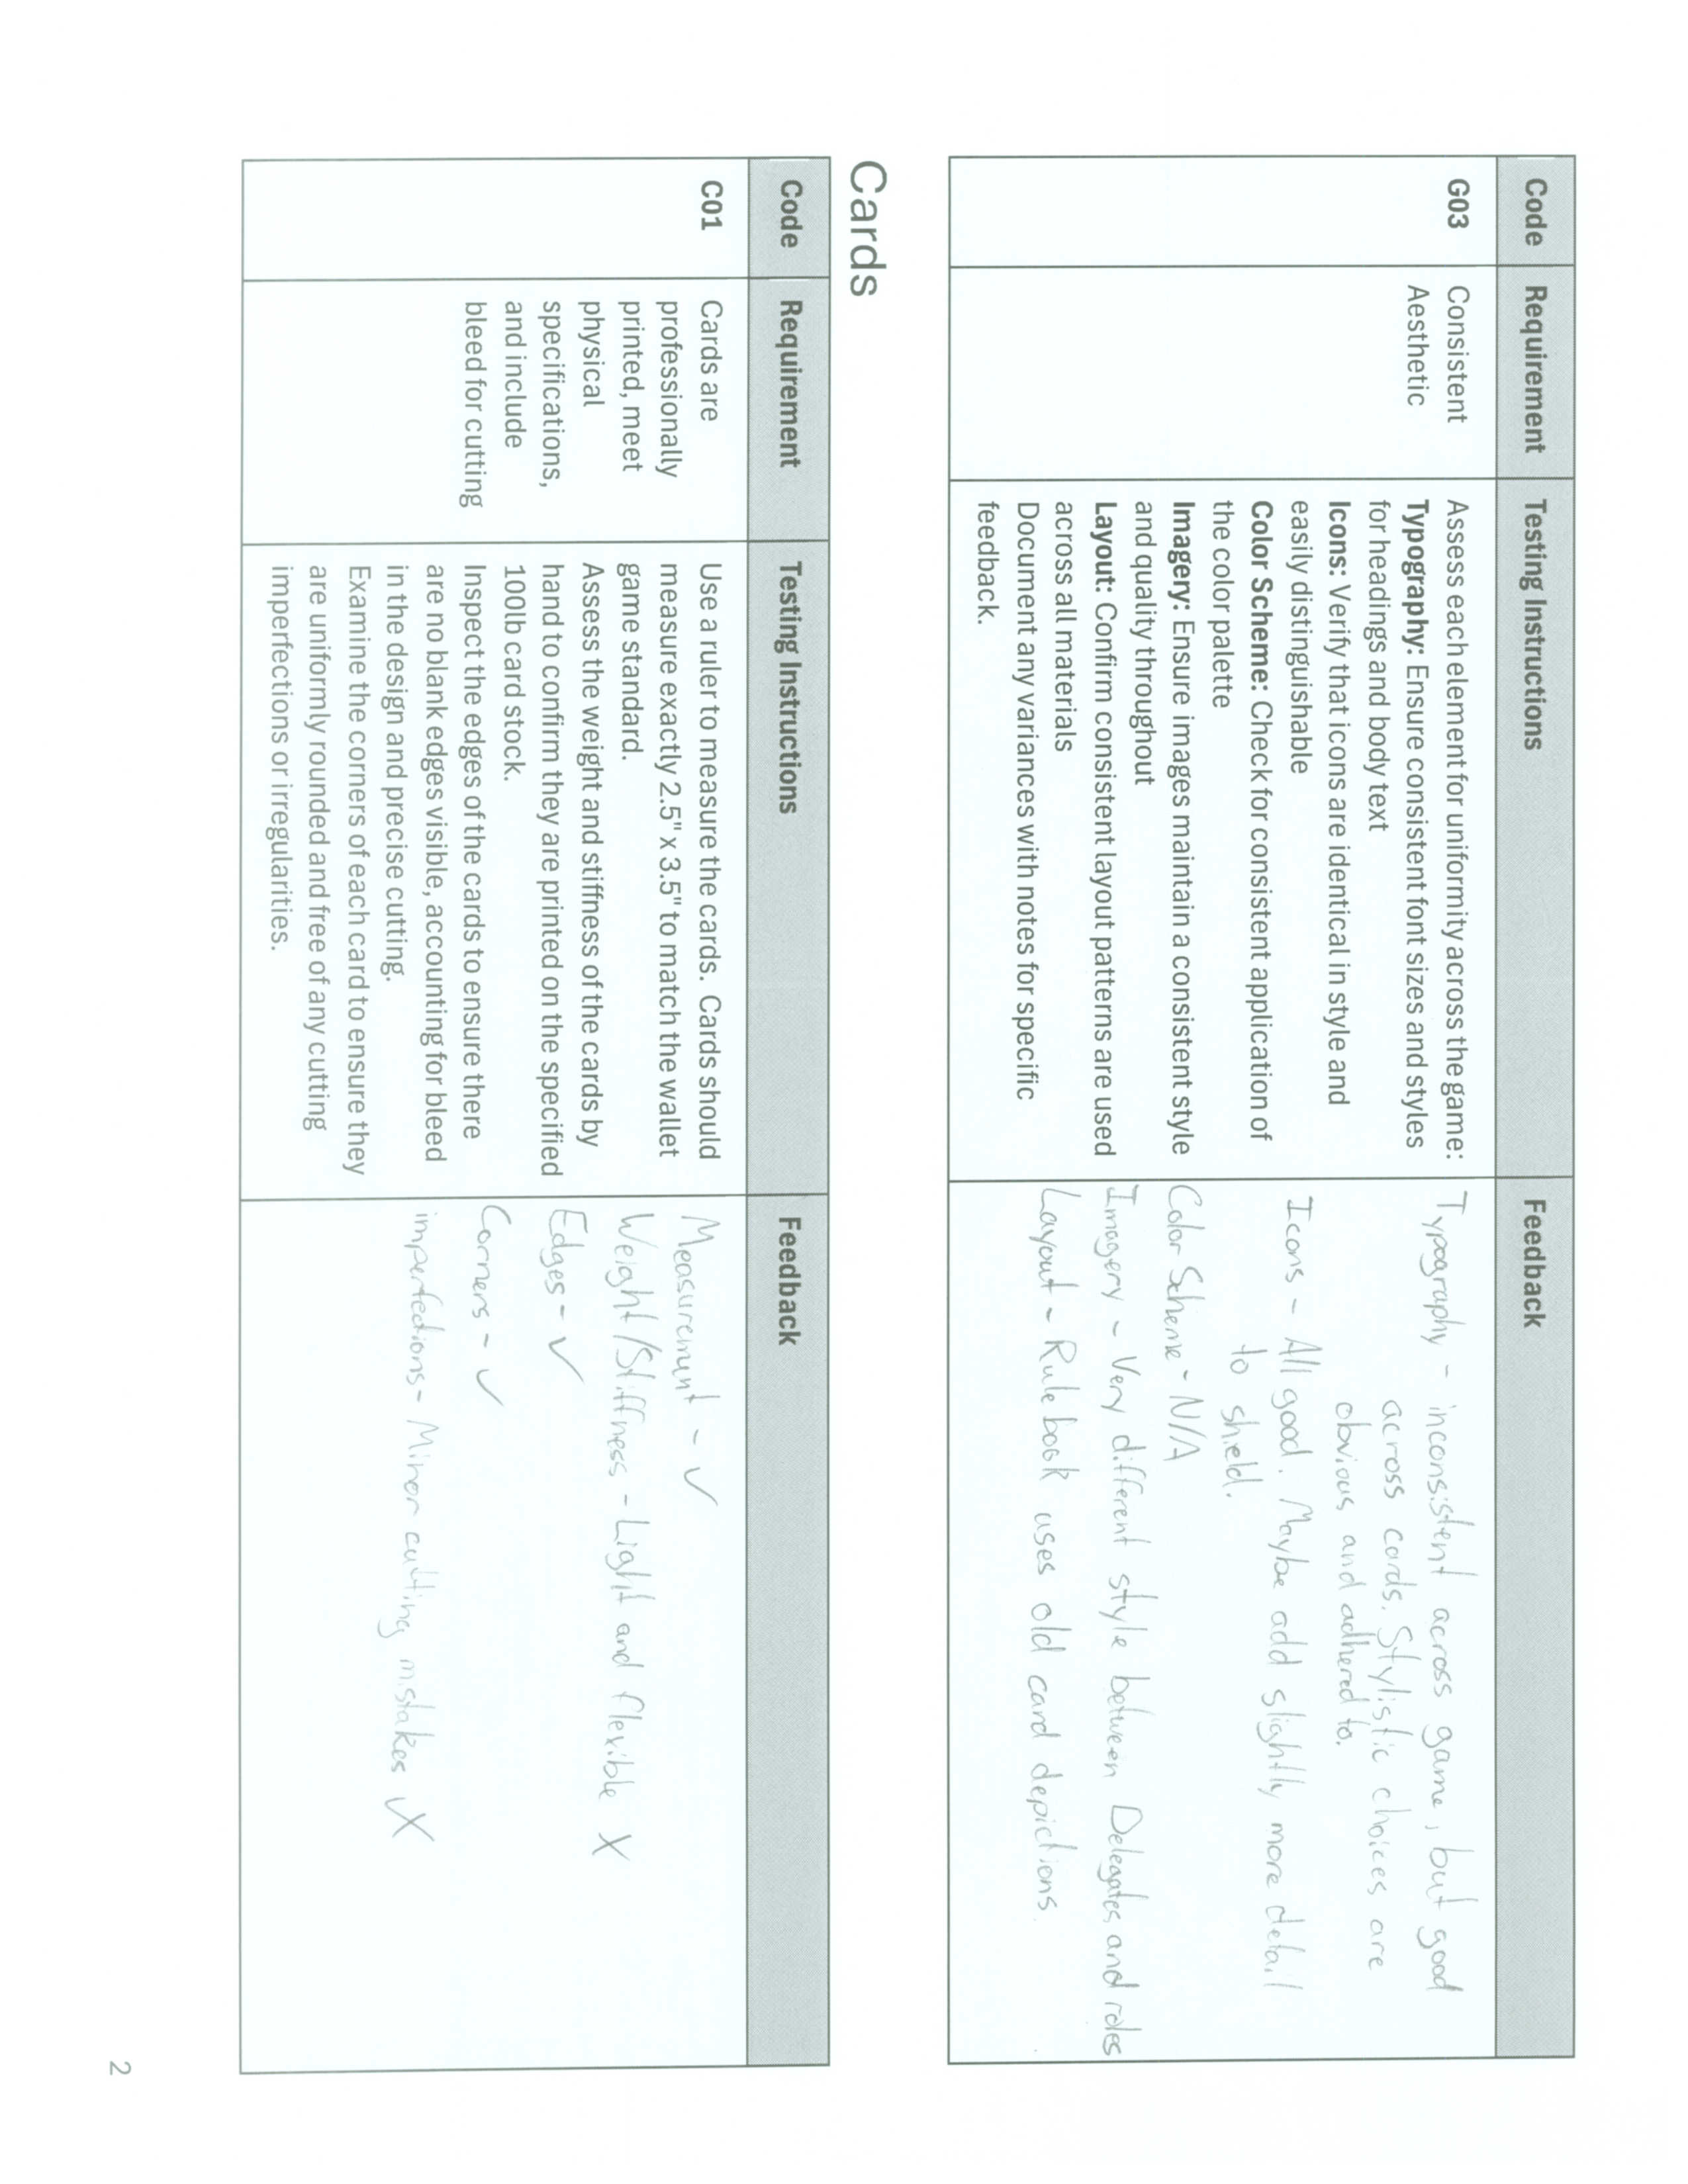 Code Requirement Testing Instructions Feedback
G03
Consistent
Aesthetic
Assess each element for uniformity across the game:
Typography: Ensure consistent font sizes and styles
for headings and body text
Icons: Verify that icons are identical in style and
easily distinguishable
Color Scheme: Check for consistent application of
the color palette
Imagery: Ensure images maintain a consistent style
and quality throughout
Layout: Confirm consistent layout patterns are used
across all materials
Document any variances with notes for specific
feedback.
Typography - inconsistent across game, but good
across cards. Stylistic choices are
obvious and adhered to.
Icons - All good. Maybe add slightly more detail
to shield.
Color Scheme - N/A
Imagery - Very different style between Delegates and roles
Layout - Rule book uses old card depictions.
Cards
Code Requirement Testing Instructions Feedback
C01
Cards are
professionally
printed, meet
physical
specifications,
and include
bleed for cutting
Use a ruler to measure the cards. Cards should
measure exactly 2.5" x 3.5" to match the wallet
game standard.
Assess the weight and stiffness of the cards by
hand to confirm they are printed on the specified
100lb card stock.
Inspect the edges of the cards to ensure there
are no blank edges visible, accounting for bleed
in the design and precise cutting.
Examine the corners of each card to ensure they
are uniformly rounded and free of any cutting
imperfections or irregularities.
Measurement - ✓
Weight/Stiffness - Light and flexible X
Edges - ✓
Corners - ✓
imperfections - Minor cutting mistakes X
2